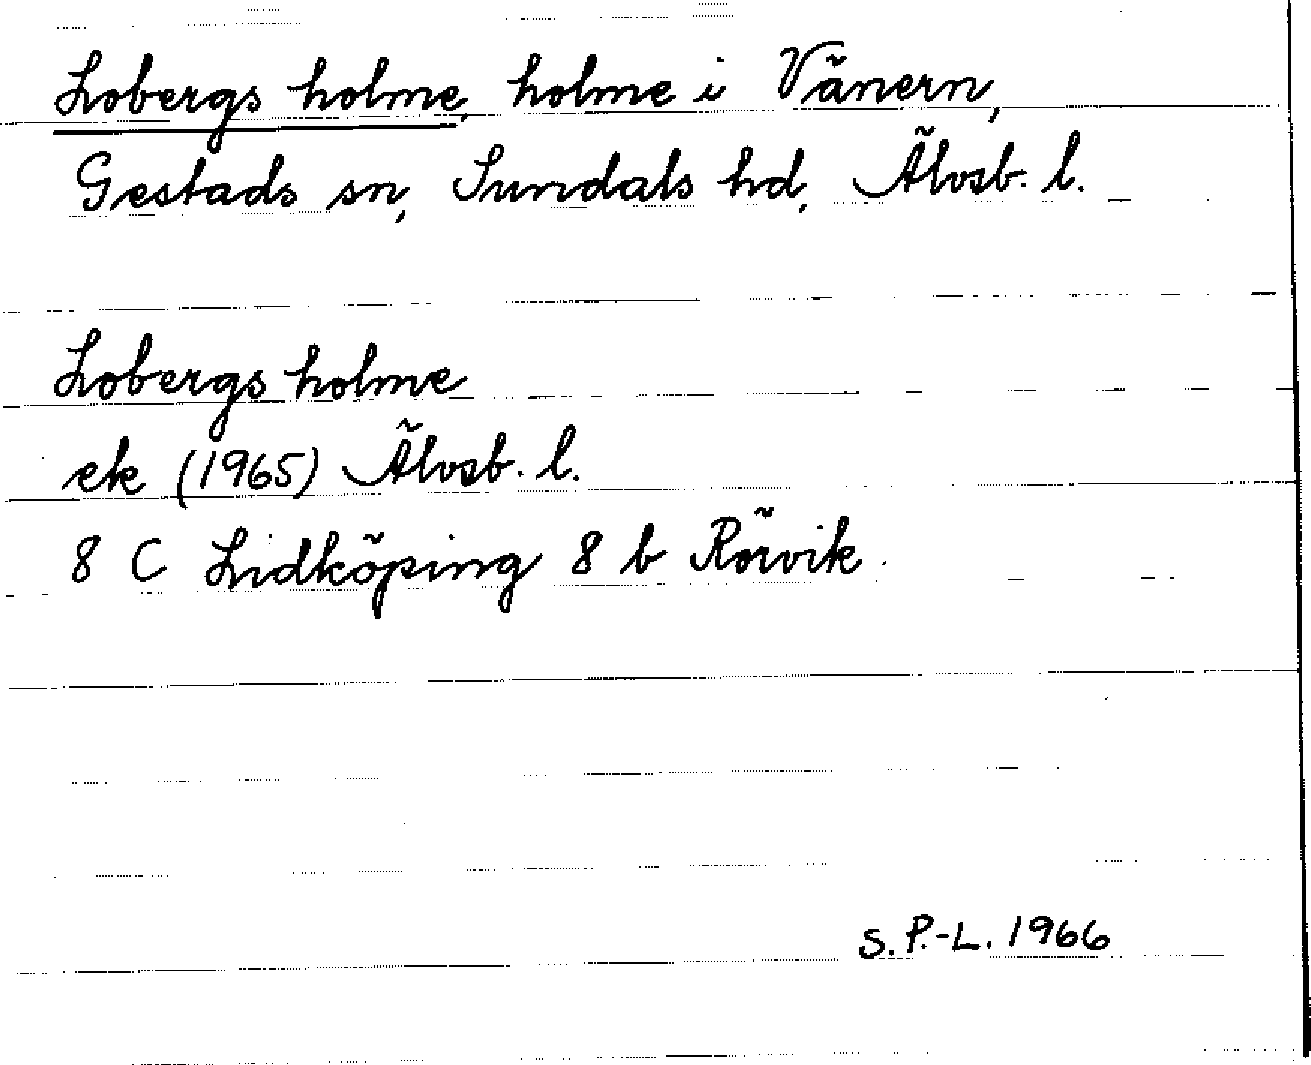 Lobergs holme, holme i Vänern,
Gestads sn, Sundals hd, Älvsb. l.
Lobergs holme
ek (1965) Älvsb. l.
8 C Lidköping 8 b Rörvik
S. P.-L. 1966